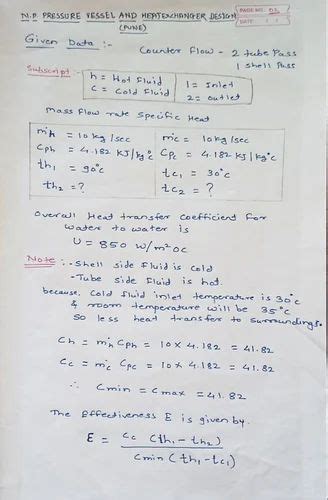 N.P. PRESSURE VESSEL AND HEAT EXCHANGER DESIGN
(PUNE)
PAGE NO. 02
DATE
Given Data :-
Counter Flow - 2 tube Pass
1 shell Pass
Subscript :-
h = Hot Fluid
C = Cold Fluid
1 = Inlet
2 = outlet
mass Flow rate Specific Heat
ṁh = 10 kg/sec
Cph = 4.182 KJ/kg°c
th₁ = 90°c
th₂ = ?
ṁc = 10 kg/sec
Cpc = 4.182 KJ/kg°c
tc₁ = 30°c
tc₂ = ?
Overall Heat transfer Coefficient For
water to water is
U = 850 W/m²oc
Note :- - Shell side Fluid is cold
- Tube side Fluid is hot.
because, Cold Fluid inlet temperature is 30°c
& room temperature will be 35°c
so less heat transfer to surroundings.
Ch = ṁh Cph = 10 x 4.182 = 41.82
Cc = ṁc Cpc = 10 x 4.182 = 41.82
∴ Cmin = Cmax = 41.82
The Effectiveness E is given by.
E = Cc (th₁ - th₂) / Cmin (th₁ - tc₁)